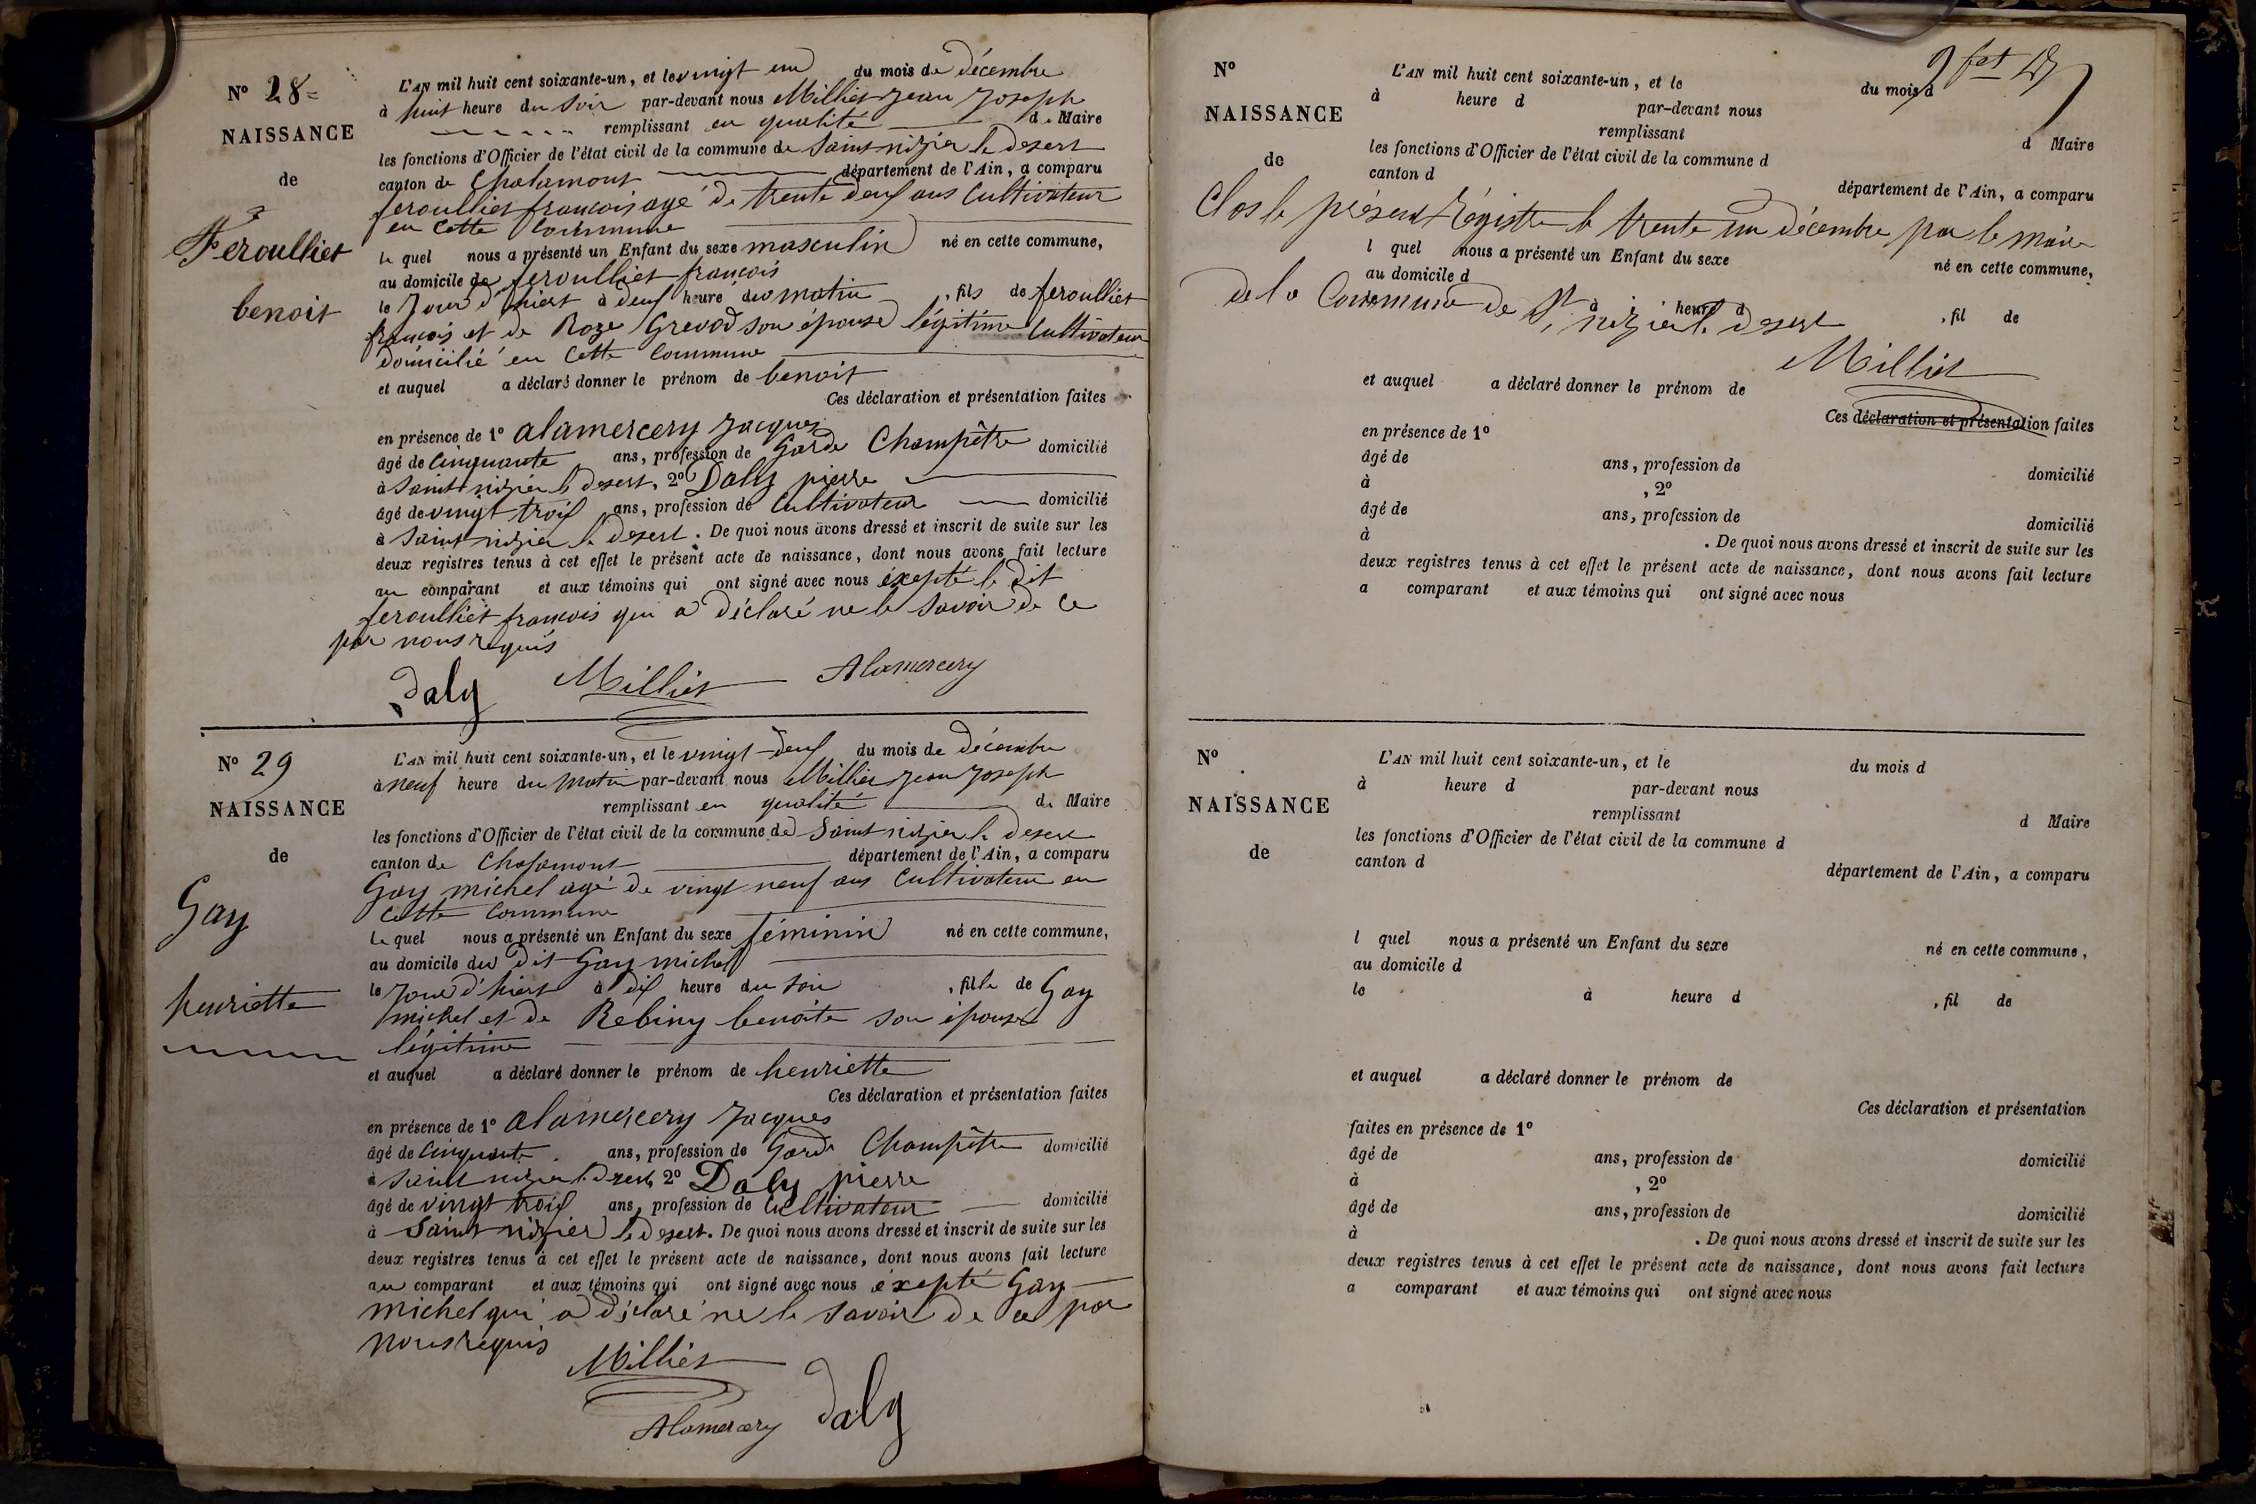 N° 28=
NAISSANCE
de
Feroulliet
benoit
L'AN mil huit cent soixante-un, et le vingt un du mois de décembre
à huit heure du soir par-devant nous Milliet Jean Joseph
remplissant en qualité de Maire
les fonctions d'Officier de l'état civil de la commune de Saint nizier le desert
canton de Chalamont département de l'Ain, a comparu
feroulliet francois agé de trente deux ans Cultivateur
en cette Commune
le quel nous a présenté un Enfant du sexe masculin né en cette commune,
au domicile de feroulliet francois
le Jour d'hiert à deux heure du matin , fils de feroulliet
francois et de Roze Grevod son épouse légitime Cultivateur
domicilié en cette Commune
et auquel a déclaré donner le prénom de benoit
Ces déclaration et présentation faites
en présence de 1° alamercery Jacques
âgé de Cinquante ans, profession de Garde Champêtre domicilié
à Saint nizier le desert, 2° Daly pierre
âgé de vingt trois ans, profession de Cultivateur domicilié
à Saint nizier le desert. De quoi nous avons dressé et inscrit de suite sur les
deux registres tenus à cet effet le présent acte de naissance, dont nous avons fait lecture
au comparant et aux témoins qui ont signé avec nous éxepté le dit
feroulliet francois qui a déclaré ne le savoir de ce
par nous requis
Daly Milliet Alamercery
N° 29
NAISSANCE
de
Gay
henriette
L'AN mil huit cent soixante-un, et le vingt-deux du mois de décembre
à neuf heure du matin par-devant nous Milliet Jean Joseph
remplissant en qualité de Maire
les fonctions d'Officier de l'état civil de la commune de Saint nizier le desert
canton de Chalamont département de l'Ain, a comparu
Gay michel agé de vingt neuf ans Cultivateur en
cette Commune
le quel nous a présenté un Enfant du sexe féminin né en cette commune,
au domicile du dit Gay michel
le Jour d'hiert à dix heure du soir , fille de Gay
michel et de Rebiny benoite son épouse
légitime
et auquel a déclaré donner le prénom de henriette
Ces déclaration et présentation faites
en présence de 1° alamercery Jacques
âgé de Cinquante ans, profession de Garde Champêtre domicilié
à Saint nizier le desert, 2° Daly pierre
âgé de vingt trois ans, profession de Cultivateur domicilié
à Saint nizier le desert. De quoi nous avons dressé et inscrit de suite sur les
deux registres tenus à cet effet le présent acte de naissance, dont nous avons fait lecture
au comparant et aux témoins qui ont signé avec nous éxepté Gay
michel qui a déclaré ne le savoir de ce par
nous requis
Milliet
Alamercery Daly
N°
NAISSANCE
de
L'AN mil huit cent soixante-un, et le du mois d
à heure d par-devant nous
remplissant d Maire
les fonctions d'Officier de l'état civil de la commune d
canton d département de l'Ain, a comparu
Clos le présent Régistre le trente un décembre par le maire
l quel nous a présenté un Enfant du sexe né en cette commune,
au domicile d
de la Commune de St nizier le desert
à heure d , fil de
Milliet
et auquel a déclaré donner le prénom de
Ces déclaration et présentation faites
en présence de 1°
âgé de ans, profession de domicilié
à , 2°
âgé de ans, profession de domicilié
à . De quoi nous avons dressé et inscrit de suite sur les
deux registres tenus à cet effet le présent acte de naissance, dont nous avons fait lecture
a comparant et aux témoins qui ont signé avec nous
N°
NAISSANCE
de
L'AN mil huit cent soixante-un, et le du mois d
à heure d par-devant nous
remplissant d Maire
les fonctions d'Officier de l'état civil de la commune d
canton d département de l'Ain, a comparu
l quel nous a présenté un Enfant du sexe né en cette commune,
au domicile d
le à heure d , fil de
et auquel a déclaré donner le prénom de
Ces déclaration et présentation
faites en présence de 1°
âgé de ans, profession de domicilié
à , 2°
âgé de ans, profession de domicilié
à . De quoi nous avons dressé et inscrit de suite sur les
deux registres tenus à cet effet le présent acte de naissance, dont nous avons fait lecture
a comparant et aux témoins qui ont signé avec nous